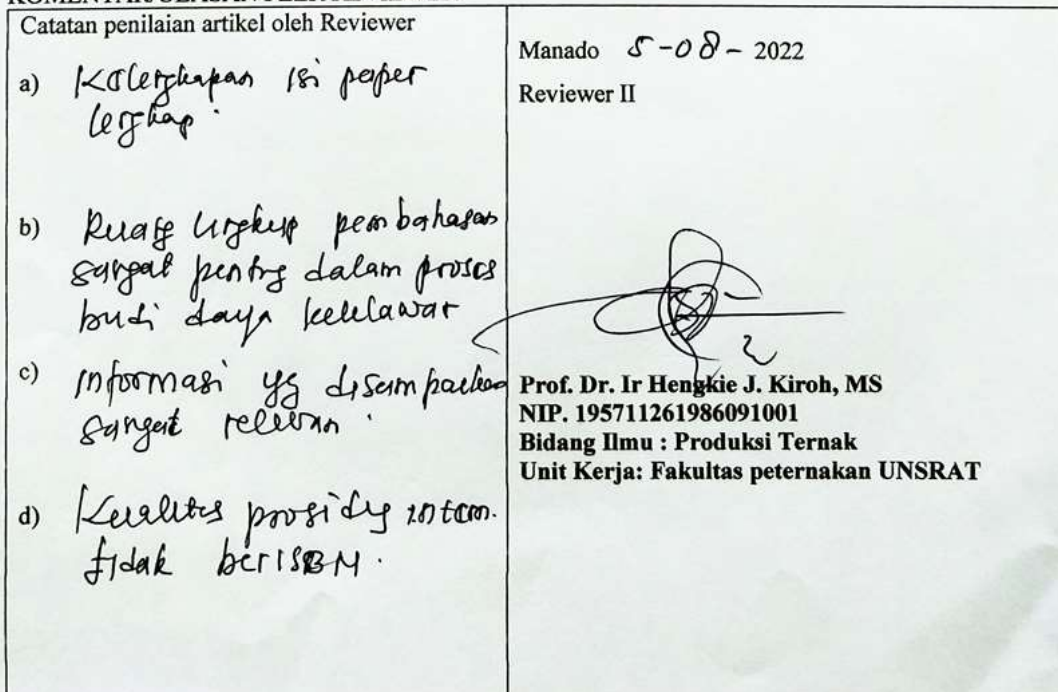 Catatan penilaian artikel oleh Reviewer
a) Kelengkapan isi paper
lengkap.
b) Ruang lingkup pembahasan
sangat penting dalam proses
budi daya kelelawar
c) Informasi yg disampaikan
sangat relevan.
d) Kualitas prosiding intern.
tidak berISBN.
Manado 5-08-2022
Reviewer II
Prof. Dr. Ir Hengkie J. Kiroh, MS
NIP. 195711261986091001
Bidang Ilmu : Produksi Ternak
Unit Kerja: Fakultas peternakan UNSRAT